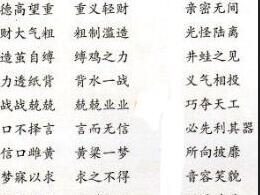 德高望重 重义轻财 亲密无间
财大气粗 粗制滥造 光怪陆离
造茧自缚 缚鸡之力 井蛙之见
力透纸背 背水一战 义气相投
战战兢兢 兢兢业业 巧夺天工
口不择言 言而无信 必先利其器
信口雌黄 黄粱一梦 所向披靡
梦寐以求 求之不得 音容笑貌